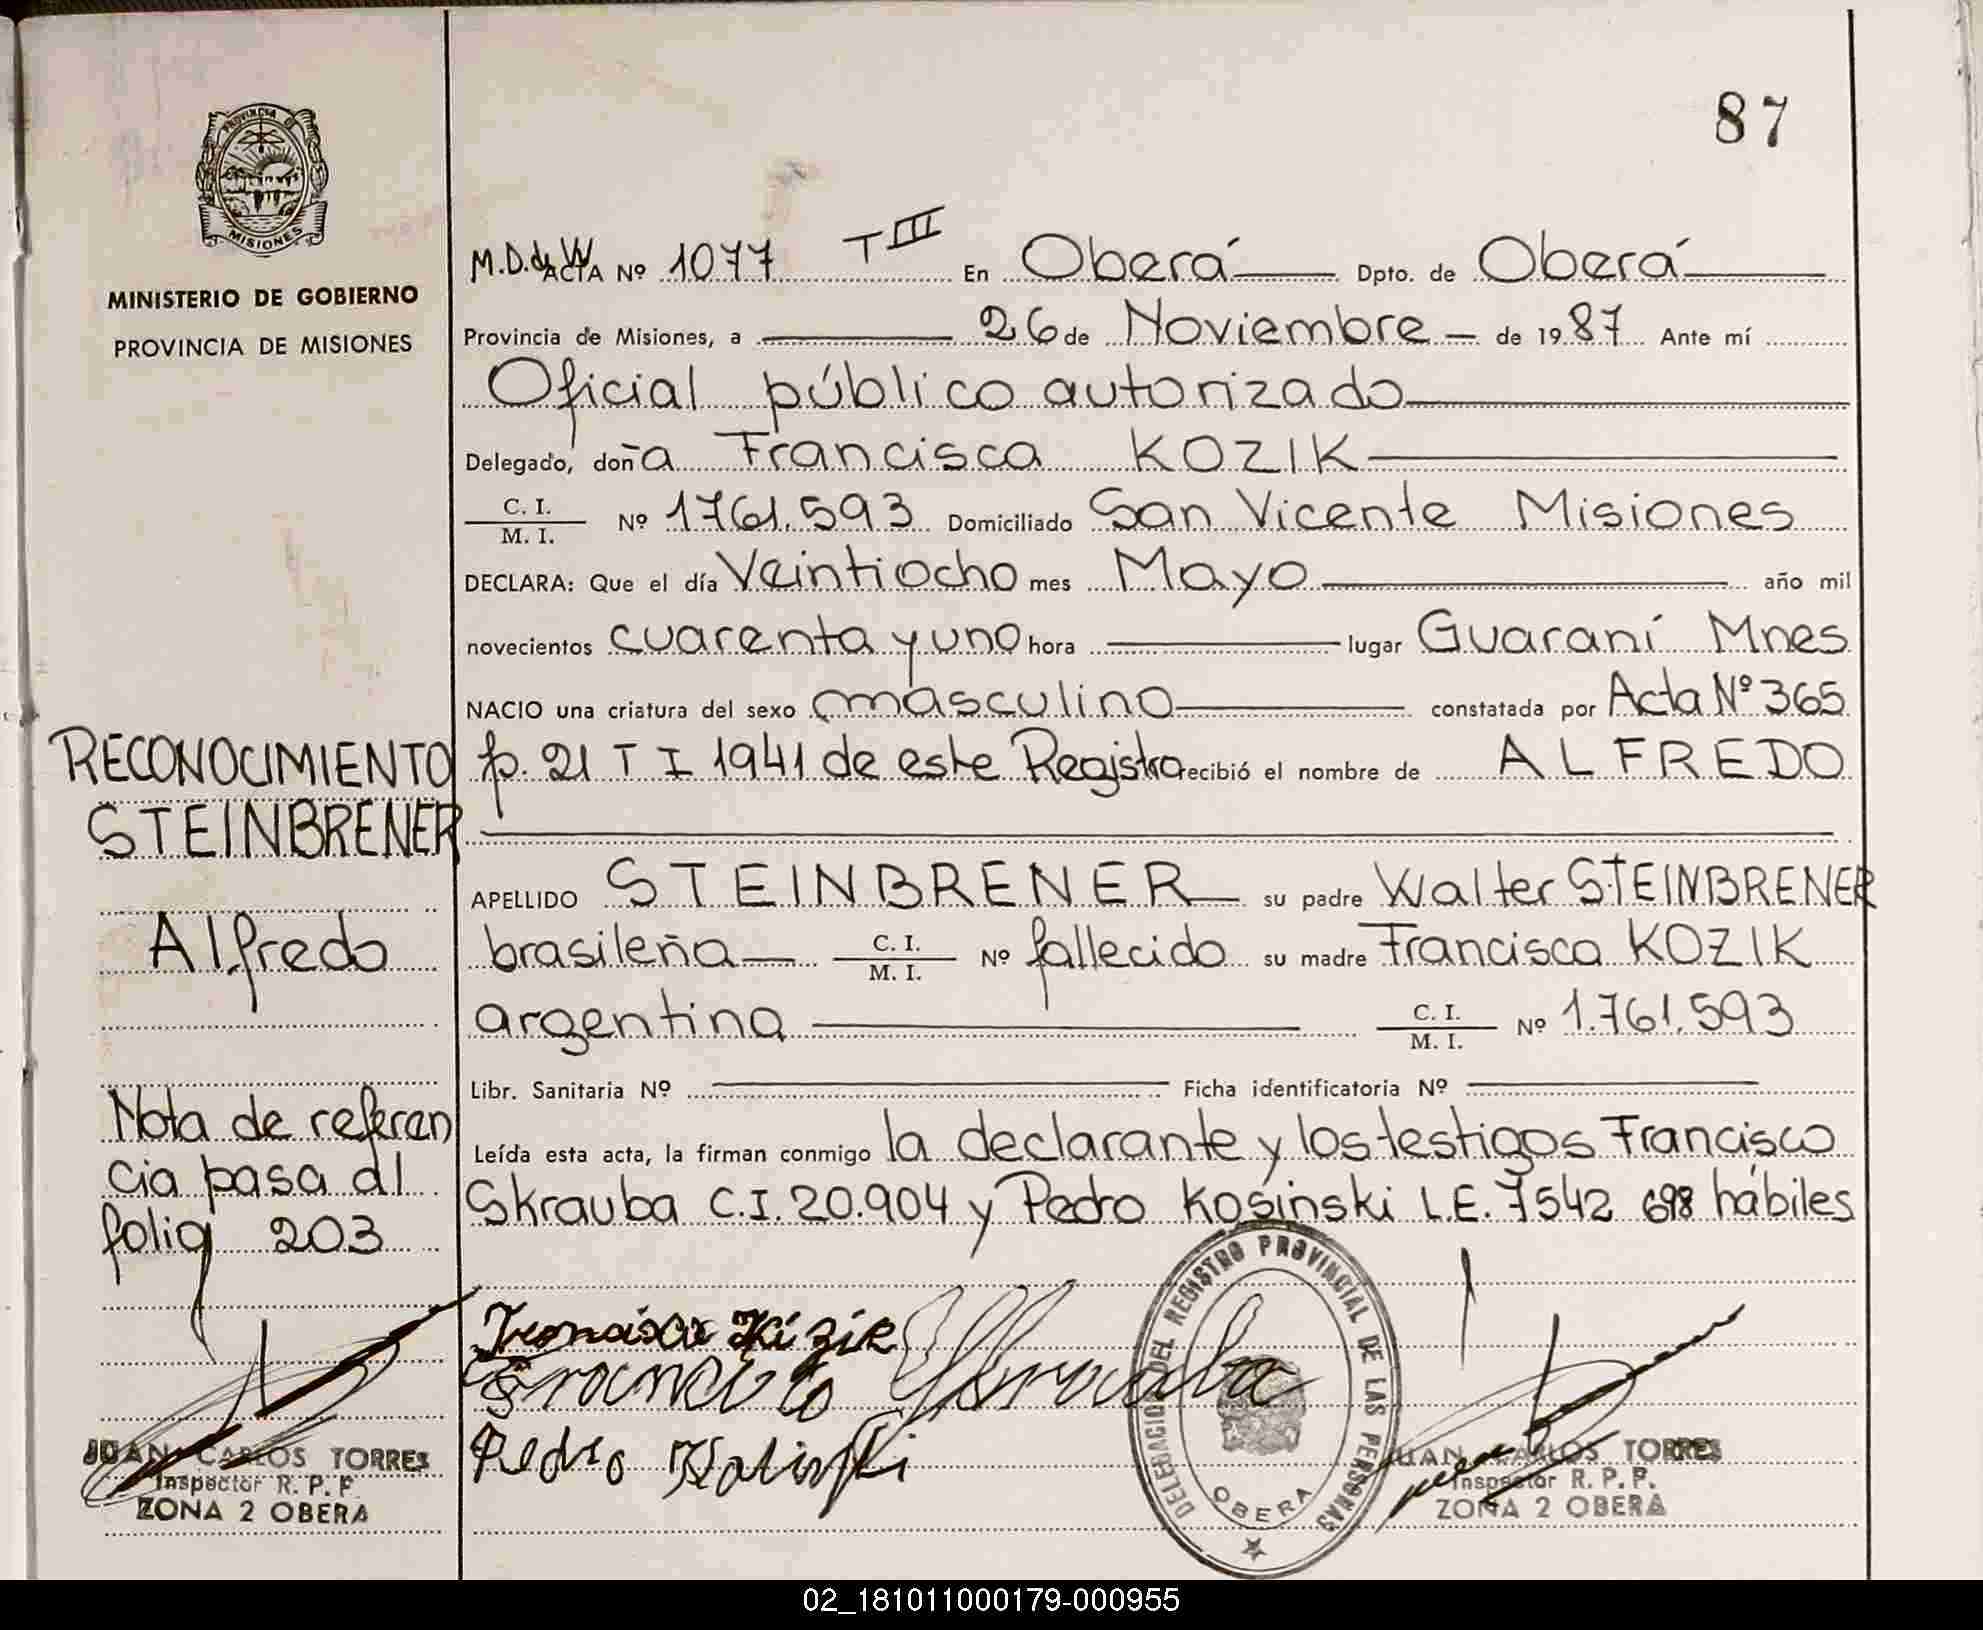 87
PROVINCIA DE
MISIONES
MINISTERIO DE GOBIERNO
PROVINCIA DE MISIONES
M.D. de W ACTA Nº 1077 T III En Oberá Dpto. de Oberá
Provincia de Misiones, a 26 de Noviembre de 1987 Ante mí
Oficial público autorizado
Delegado, doña Francisca KOZIK
C. I.
M. I. Nº 1761.593 Domiciliado San Vicente Misiones
DECLARA: Que el día Veintiocho mes Mayo año mil
novecientos cuarenta y uno hora lugar Guaraní Mnes
NACIO una criatura del sexo masculino constatada por Acta Nº 365
fº. 21 T I 1941 de este Registro recibió el nombre de ALFREDO
APELLIDO STEINBRENER su padre Walter STEINBRENER
brasileña C. I.
M. I. Nº fallecido su madre Francisca KOZIK
argentina C. I.
M. I. Nº 1.761.593
Libr. Sanitaria Nº Ficha identificatoria Nº
Leída esta acta, la firman conmigo la declarante y los testigos Francisco
Skrauba C.I. 20.904 y Pedro Kosinski L.E. 7542 698 hábiles
RECONOCIMIENTO
STEINBRENER
Alfredo
Nota de referen
cia pasa al
folio 203
Pedro
DELEGACION DEL REGISTRO PROVINCIAL DE LAS PERSONAS
OBERA
JUAN CARLOS TORRES
Inspector R. P. P.
ZONA 2 OBERA
JUAN CARLOS TORRES
Inspector R. P. P.
ZONA 2 OBERA
02_181011000179-000955